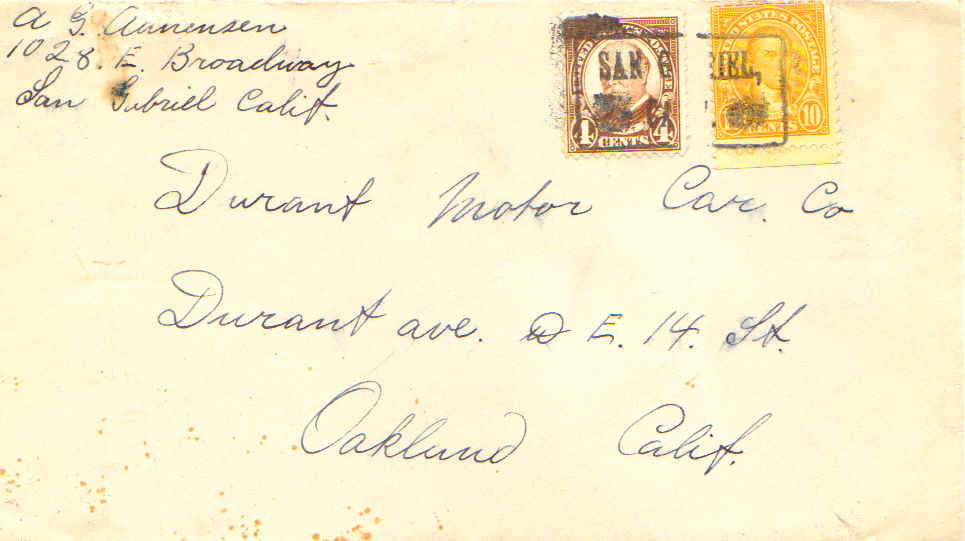 A G. Aunensen
1028. E. Broadway
San Gabriel Calif.
UNITED STATES POSTAGE
4 CENTS 4
UNITED STATES POSTAGE
10 CENTS 10
SAN RIEL,
Durant Motor Car. Co
Durant ave. E. 14. St.
Oakland Calif.